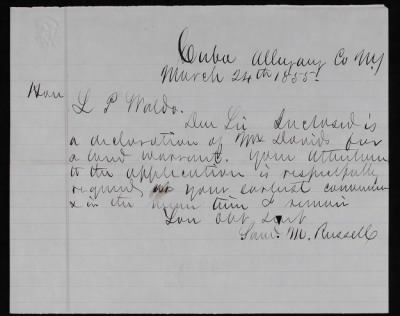 Cuba Allegany Co NY
March 24th 1855.
Hon L P Waldo.
Dear Sir Inclosed is
a declaration of Mrs Davids for
a land warrant. Your attention
to the application is respectfully
required at your earliest convenience
& in the mean time I remain
Your Obt Servt
Saml. M. Russell